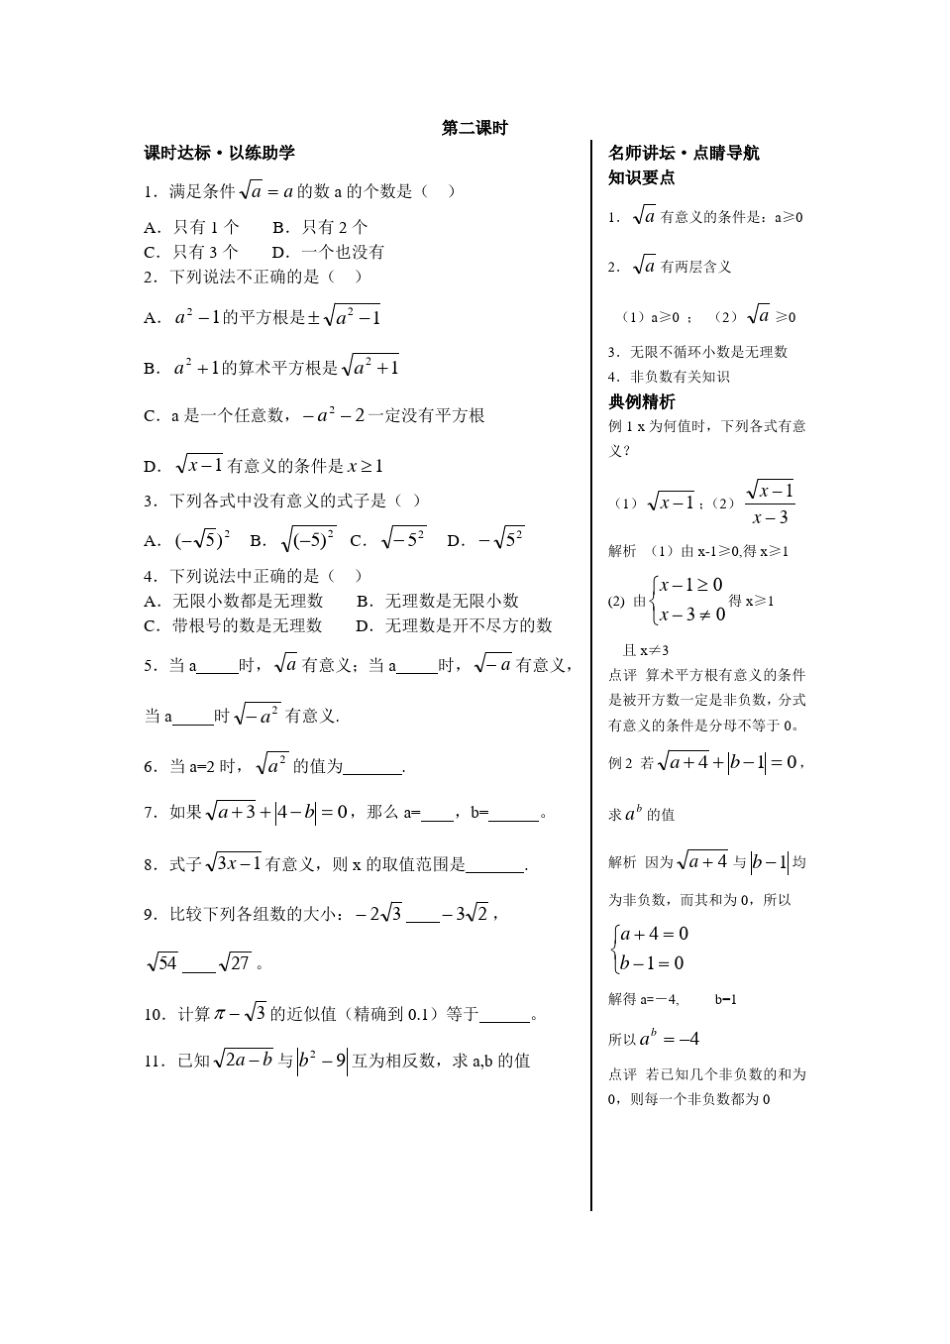 第二课时
课时达标·以练助学
1．满足条件√a = a的数 a 的个数是（　）
A．只有 1 个　　B．只有 2 个
C．只有 3 个　　D．一个也没有
2．下列说法不正确的是（　）
A．a² − 1的平方根是±√(a² − 1)
B．a² + 1的算术平方根是√(a² + 1)
C．a 是一个任意数，− a² − 2一定没有平方根
D．√(x − 1)有意义的条件是 x ≥ 1
3．下列各式中没有意义的式子是（ ）
A．(−√5)²　B．√(−5)²　C．√−5²　D．−√5²
4．下列说法中正确的是（　）
A．无限小数都是无理数　　B．无理数是无限小数
C．带根号的数是无理数　　D．无理数是开不尽方的数
5．当 a_____时，√a 有意义；当 a_____时，√−a 有意义，
当 a_____时√−a² 有意义.
6．当 a=2 时，√a² 的值为_______.
7．如果√(a+3) + |4−b| = 0，那么 a=____，b=______。
8．式子√(3x−1)有意义，则 x 的取值范围是_______.
9．比较下列各组数的大小：−2√3 ____−3√2，
√54 ____√27。
10．计算π − √3 的近似值（精确到 0.1）等于______。
11．已知√(2a−b) 与|b² − 9|互为相反数，求 a,b 的值
名师讲坛·点睛导航
知识要点
1．√a 有意义的条件是：a≥0
2．√a 有两层含义
（1）a≥0 ；（2）√a ≥0
3．无限不循环小数是无理数
4．非负数有关知识
典例精析
例 1 x 为何值时，下列各式有意
义？
（1）√(x−1)；（2）√(x−1)/(x−3)
解析 （1）由 x-1≥0,得 x≥1
(2) 由{x−1≥0 x−3≠0 得 x≥1
且 x≠3
点评 算术平方根有意义的条件
是被开方数一定是非负数，分式
有意义的条件是分母不等于 0。
例 2 若√(a+4) + |b−1| = 0，
求 aᵇ 的值
解析 因为√(a+4) 与|b−1|均
为非负数，而其和为 0，所以
{a+4=0 b−1=0
解得 a=－4,　　b=1
所以 aᵇ = −4
点评 若已知几个非负数的和为
0，则每一个非负数都为 0